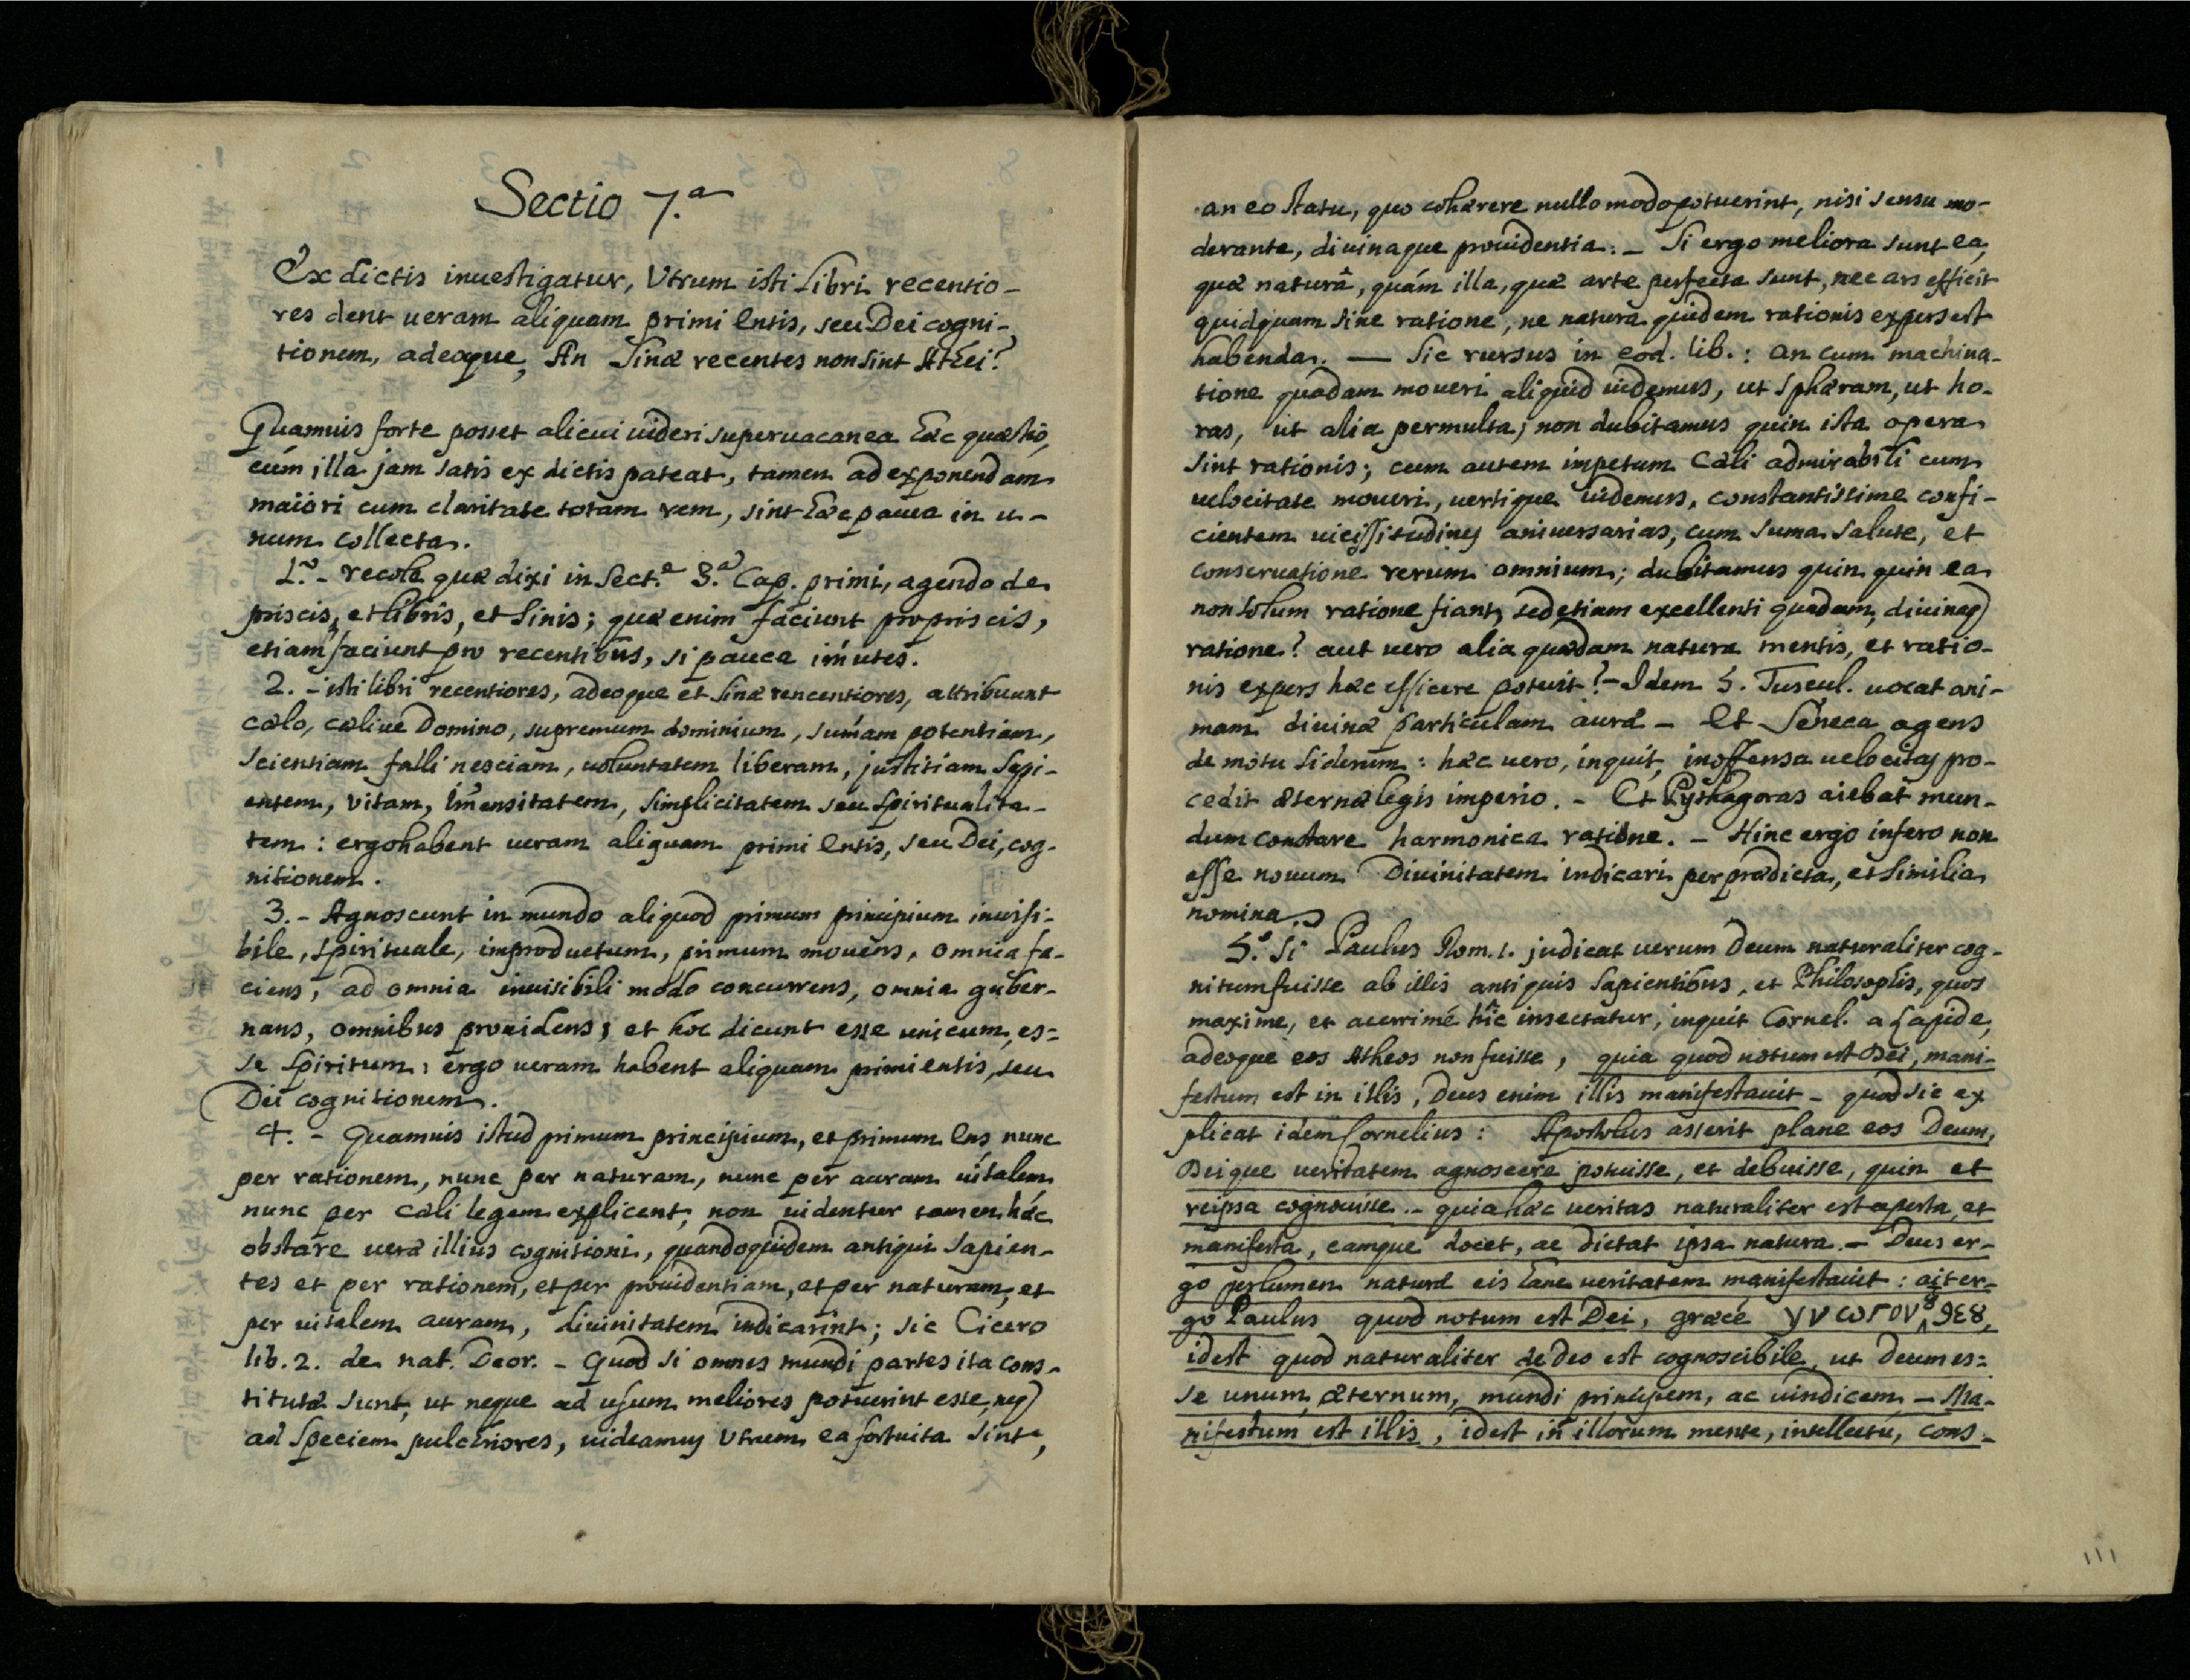 Sectio 7.a
Ex dictis inuestigatur, Vtrum isti Libri recentio-
res dent ueram aliquam primi Entis, seu Dei cogni-
tionem, adeoque, An Sinæ recentes non sint Athei?
Quamuis forte posset alicui uideri superuacanea hæc quæstio,
cúm illa jam satis ex dictis pateat, tamen ad exponendam
maiori cum claritate totam rem, sint hæc pauca in u-
num collecta.
1.º - recole quæ dixi in Sect.e 3.a Cap. primi, agendo de
priscis, et libris, et Sinis; quæ enim faciunt pro priscis,
etiam faciunt pro recentibus, si pauca imutes.
2. - isti libri recentiores, adeoque et Sinæ rencentiores, attribuunt
cœlo, cœliue Domino, supremum dominium, sumam potentiam,
scientiam falli nesciam, uoluntatem liberam, justitiam Sapi-
entem, vitam, imensitatem, simplicitatem seu spiritualita-
tem: ergo habent ueram aliquam primi Entis, seu Dei, cog-
nitionem.
3. - Agnoscunt in mundo aliquod primum principium inuisi-
bile, spirituale, improductum, primum mouens, omnia fa-
ciens, ad omnia inuisibili modo concurrens, omnia guber-
nans, omnibus prouidens; et hoc dicunt esse unicum, es=
se spiritum: ergo ueram habent aliquam primi entis, seu
Dei cognitionem.
4. - Quamuis istud primum principium, et primum Ens nunc
per rationem, nunc per naturam, nunc per auram uitalem
nunc per Cæli legem explicent, non uidentur tamen hæc
obstare ueræ illius cognitioni, quandoquidem antiqui Sapien-
tes et per rationem, et per prouidentiam, et per naturam, et
per uitalem auram, diuinitatem indicarint; sic Cicero
lib. 2. de nat. Deor. - Quod si omnes mundi partes ita cons-
titutæ sunt, ut neque ad usum meliores potuerint esse, neq
ad speciem pulchriores, uideamus Vtrum ea fortuita sint,
an eo statu, quo cohærere nullo modo potuerint, nisi sensu mo-
derante, diuinaque prouidentia. - Si ergo meliora sunt ea,
quæ naturâ, quám illa, quæ arte perfecta sunt, nec ars efficit
quidquam sine ratione, ne natura quidem rationis expers est
habenda. — Sic rursus in eod. lib.: an cum machina-
tione quadam moueri aliquid uidemus, ut Sphæram, ut ho-
ras, ut alia permulta; non dubitamus quin ista opera
sint rationis; cum autem impetum Cæli admirabili cum
uelocitate moueri, uertique uidemus, constantissime confi-
cientem uicissitudines aniuersarias, cum suma salute, et
conseruatione rerum omnium; dubitamus quin quin ea
non solum ratione fiant, sed etiam excellenti quadam, diuinaq
ratione? aut uero alia quædam natura mentis, et ratio-
nis expers hæc efficere potuit? - Idem 5. Tuscul. uocat ani-
mam diuinæ particulam auræ - Et Seneca agens
de motu Siderum: hæc uero, inquit, inoffensa uelocitas pro-
cedit æternæ legis imperio. - Et Pythagoras aiebat mun-
dum constare harmonica ratione. - Hinc ergo infero non
esse nouum Diuinitatem indicari per prædicta, et Similia
nomina.
5.º Si Paulus Rom. 1. judicat uerum Deum naturaliter cog-
nitum fuisse ab illis antiquis Sapientibus, et Philosophis, quos
maxime, et acerrimé hîc insectatur, inquit Cornel. a Lapide,
adeoque eos Atheos non fuisse, quia quod notum est Dei, mani-
festum est in illis, Deus enim illis manifestauit - quod sic ex
plicat idem Cornelius: Apostolus asserit plane eos Deum,
Deique ueritatem agnoscere potuisse, et debuisse, quin et
reipsa cognouisse. - quia hæc ueritas naturaliter est aperta, et
manifesta, eamque docet, ac dictat ipsa natura. - Deus er-
go per lumen naturæ eis hanc ueritatem manifestauit: ait er-
go Paulus quod notum est Dei, græcé γνωτον ȣ ϑεȣ,
idest quod naturaliter de Deo est cognoscibile, ut Deum es=
se unum, æternum, mundi principem, ac uindicem, - Ma-
nifestum est illis, idest in illorum mente, intellectu, cons-
111